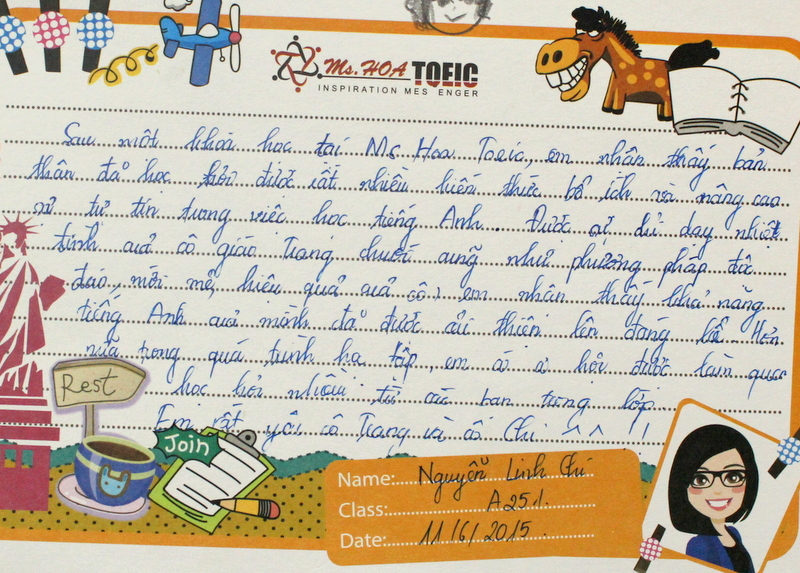 Ms. HOA TOEIC
INSPIRATION MESSENGER
Sau một khoá học tại Ms Hoa Toeic, em nhận thấy bản
thân đã học hỏi được rất nhiều kiến thức bổ ích và nâng cao
sự tự tin trong việc học tiếng Anh. Được sự chỉ dạy nhiệt
tình của cô giáo Trang dưới cũng như phương pháp độc
đáo, mới mẻ, hiệu quả của cô, em nhận thấy khả năng
tiếng Anh của mình đã được cải thiện lên đáng kể. Hơn
nữa trong quá trình học tập, em có cơ hội được làm quen
học hỏi nhiều từ các bạn trong lớp
Em rất yêu cô Trang và cô Chi ^^ !
Rest
Join
Name: Nguyễn Linh Chi
Class: A251.
Date: 11/6/2015